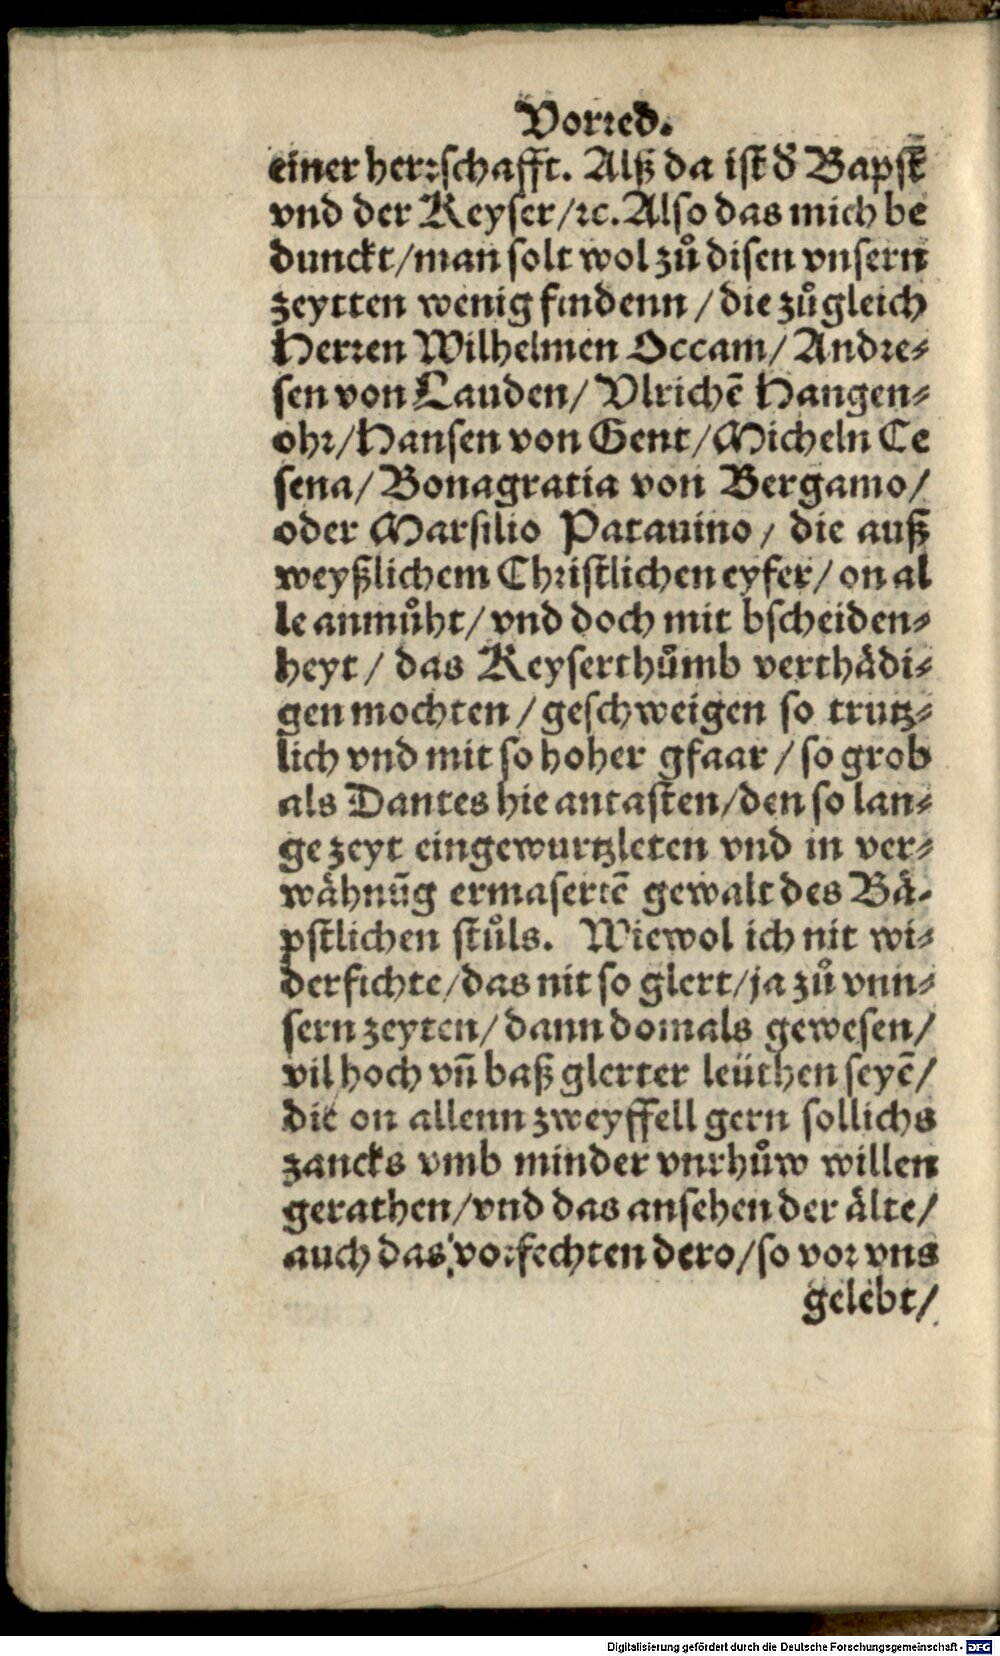 Vorred.
einer herrschafft. Alß da ist d̕ Bapst
vnd der Keyser/ꝛc. Also das mich be
dunckt/man solt wol zuͦ disen vnsern
zeytten wenig findenn/die zuͦgleich
Herren Wilhelmen Occam/Andre⸗
sen von Lauden/Vlrichē Hangen⸗
ohr/Hansen von Gent/Micheln Ce
sena/Bonagratia von Bergamo/
oder Marsilio Patauino/die auß
weyßlichem Christlichen eyfer/on al
le anmuͦht/vnd doch mit bscheiden⸗
heyt/das Keyserthuͦmb verthädi⸗
gen mochten/geschweigen so trutz⸗
lich vnd mit so hoher gfaar/so grob
als Dantes hie antasten/den so lan⸗
ge zeyt eingewurtzleten vnd in ver⸗
wähnūg ermasertē gewalt des Bä⸗
pstlichen stuͦls. Wiewol ich nit wi⸗
derfichte/das nit so glert/ja zuͦ vnn⸗
sern zeyten/dann domals gewesen/
vil hoch vn̄ baß glerter leüthen seyē/
die on allenn zweyffell gern sollichs
zancks vmb minder vnrhuͦw willen
gerathen/vnd das ansehen der älte/
auch das vorfechten dero/so vor vns
gelebt/
Digitalisierung gefördert durch die Deutsche Forschungsgemeinschaft - DFG